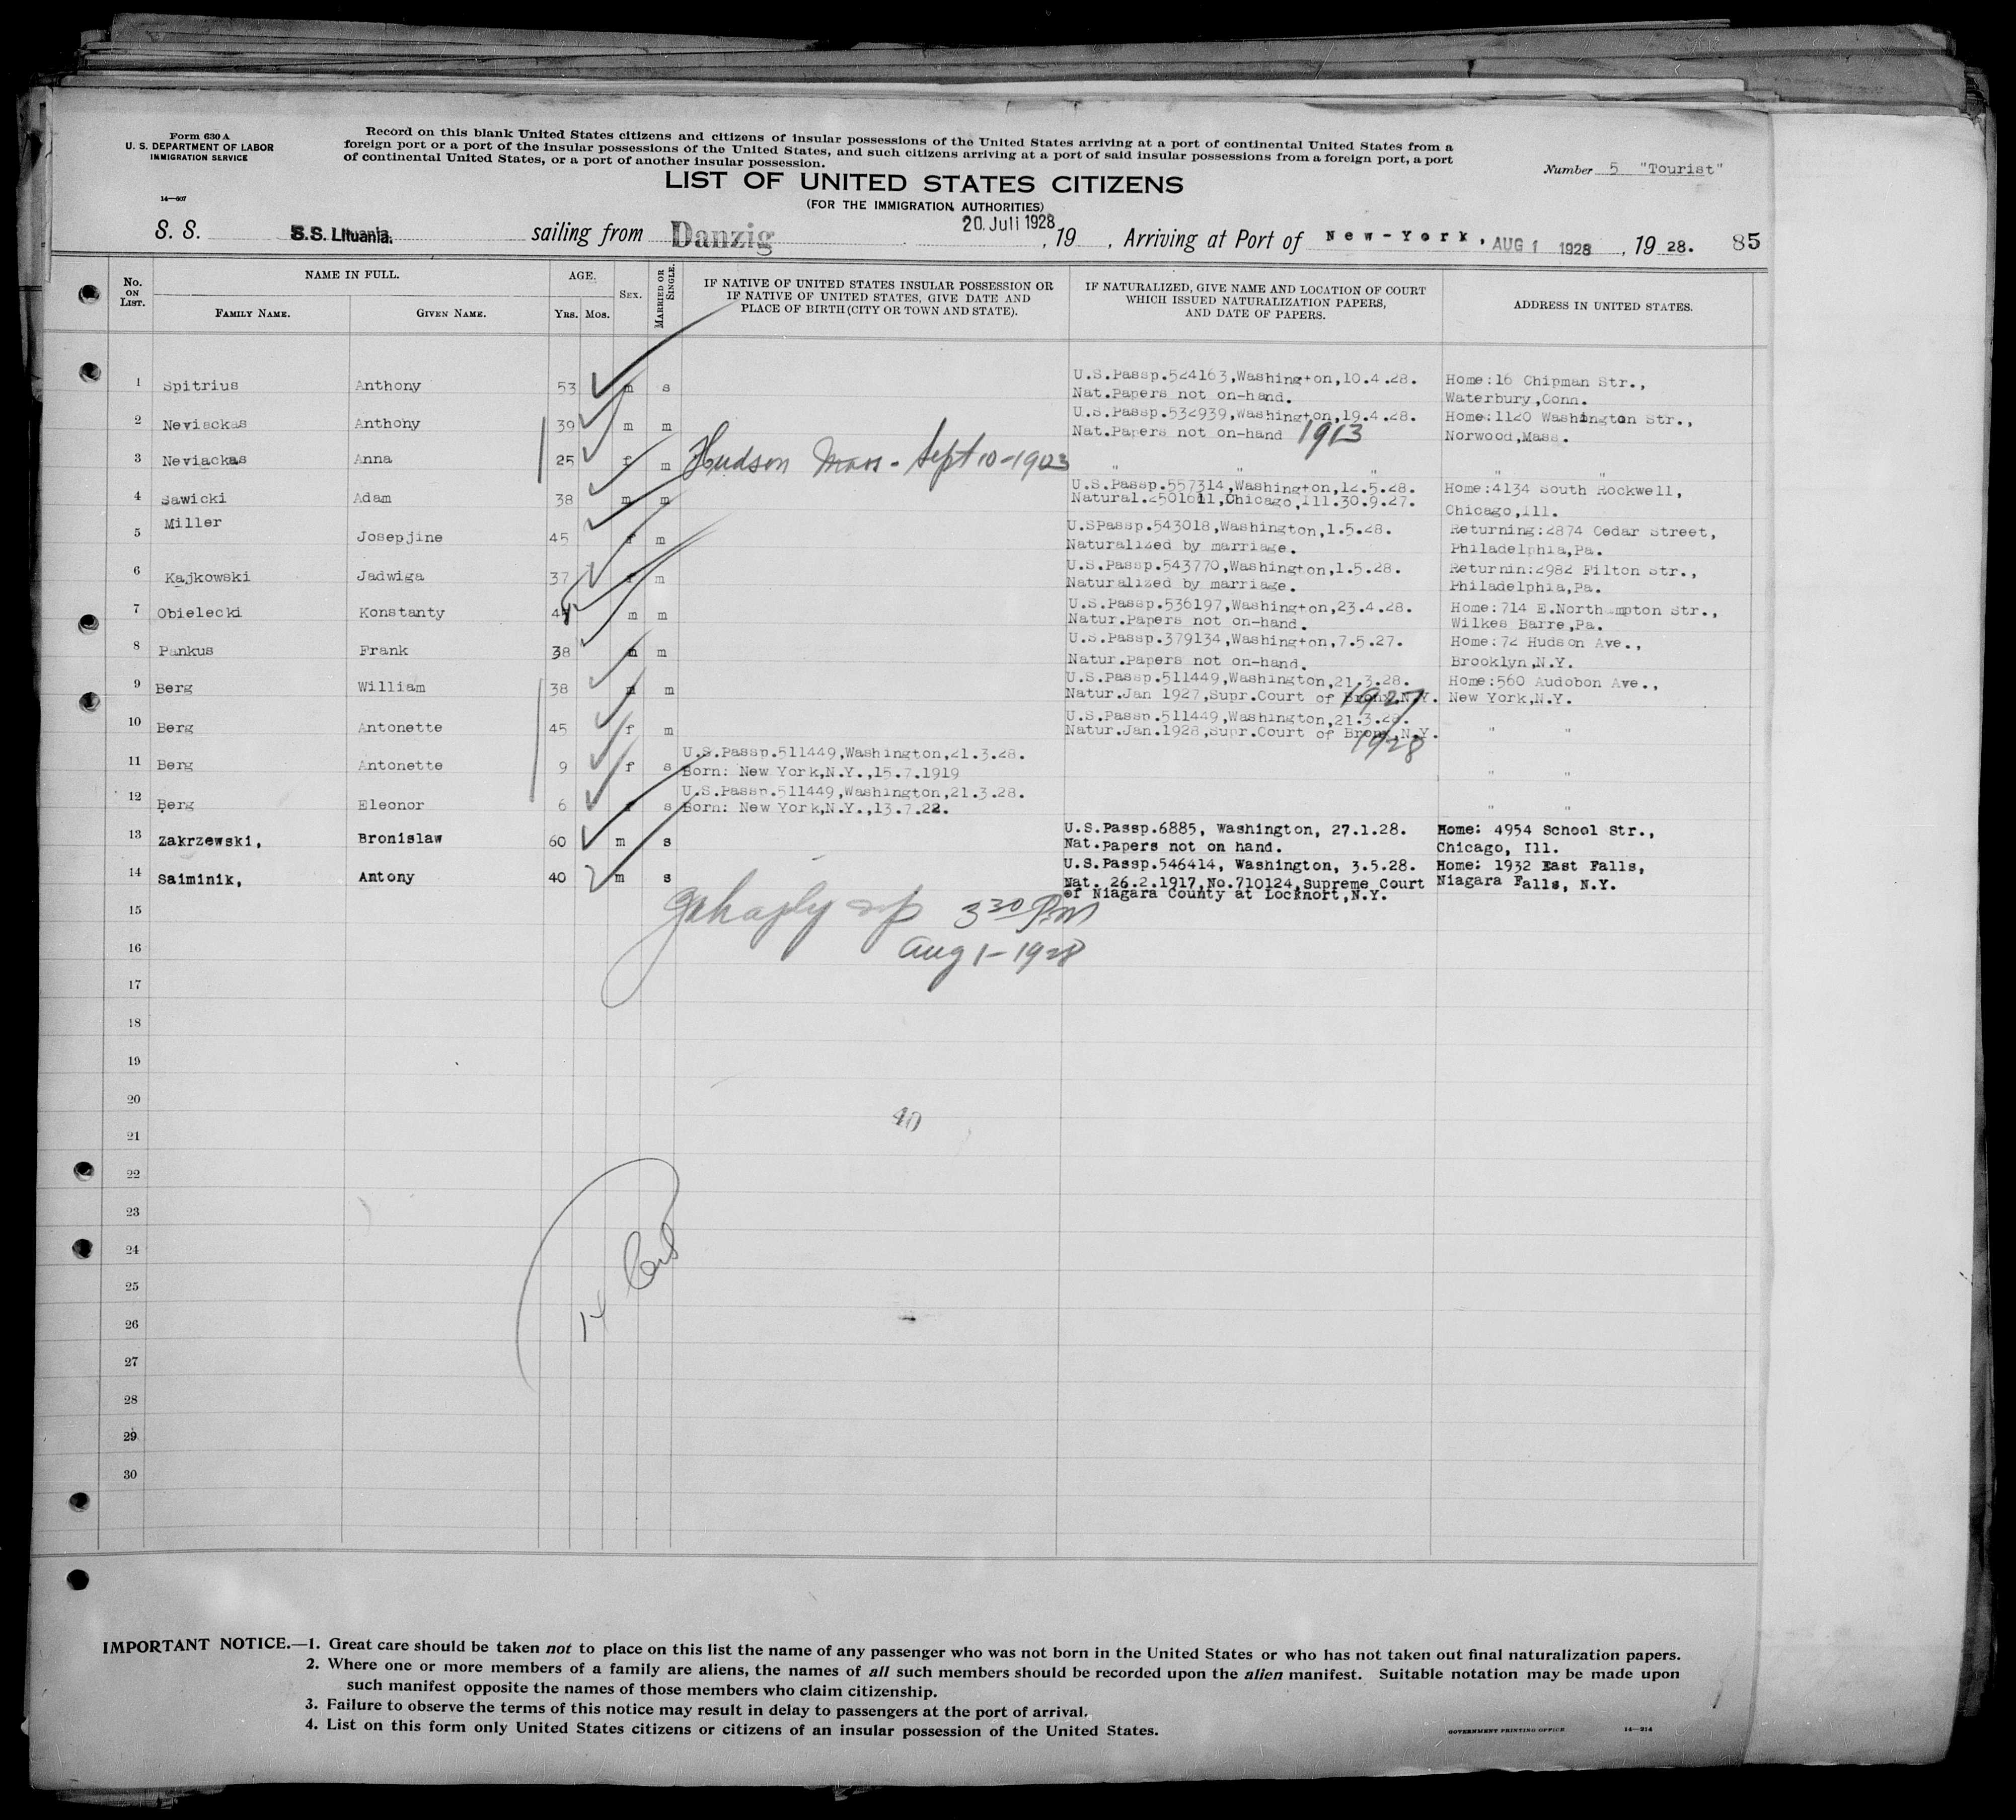 Form 630 A
U. S. DEPARTMENT OF LABOR
IMMIGRATION SERVICE
14—607
Record on this blank United States citizens and citizens of insular possessions of the United States arriving at a port of continental United States from a
foreign port or a port of the insular possessions of the United States, and such citizens arriving at a port of said insular possessions from a foreign port, a port
of continental United States, or a port of another insular possession.
Number 5 "Tourist"
LIST OF UNITED STATES CITIZENS
(FOR THE IMMIGRATION AUTHORITIES)
S. S. S.S. Lituania. sailing from Danzig 20. Juli 1928, 19 , Arriving at Port of New-York, AUG 1 1928, 19 28. 85
No. ON LIST. NAME IN FULL. AGE. SEX. MARRIED OR SINGLE. IF NATIVE OF UNITED STATES INSULAR POSSESSION OR IF NATIVE OF UNITED STATES, GIVE DATE AND PLACE OF BIRTH (CITY OR TOWN AND STATE). IF NATURALIZED, GIVE NAME AND LOCATION OF COURT WHICH ISSUED NATURALIZATION PAPERS, AND DATE OF PAPERS. ADDRESS IN UNITED STATES.
FAMILY NAME. GIVEN NAME. Yrs. Mos.
1 Spitrius Anthony 53 m s U.S.Passp.524163,Washington,10.4.28. Home:16 Chipman Str.,
Nat.Papers not on-hand. Waterbury,Conn.
2 Neviackas Anthony 39 m m U.S.Passp.532939,Washington,19.4.28. Home:1120 Washington Str.,
Nat.Papers not on-hand 1913 Norwood,Mass.
3 Neviackas Anna 25 f m Hudson Mass - Sept 10-1903 " " " " "
4 Sawicki Adam 38 m m U.S.Passp.557314,Washington,12.5.28. Home:4134 South Rockwell,
Natural.2501611,Chicago,Ill.30.9.27. Chicago,Ill.
5 Miller Josepjine 45 f m U.SPassp.543018,Washington,1.5.28. Returning:2874 Cedar Street,
Naturalized by marriage. Philadelphia,Pa.
6 Kajkowski Jadwiga 37 f m U.S.Passp.543770,Washington,1.5.28. Returnin:2982 Filton Str.,
Naturalized by marriage. Philadelphia,Pa.
7 Obielecki Konstanty m m U.S.Passp.536197,Washington,23.4.28. Home:714 E.Northampton Str.,
Natur.Papers not on-hand. Wilkes Barre,Pa.
8 Pankus Frank 38 m m U.S.Passp.379134,Washington,7.5.27. Home:72 Hudson Ave.,
Natur.Papers not on-hand. Brooklyn,N.Y.
9 Berg William 38 m m U.S.Passp.511449,Washington,21.3.28. Home:560 Audobon Ave.,
Natur.Jan 1927,Supr.Court of Bronx,N.Y. New York,N.Y.
1927
10 Berg Antonette 45 f m U.S.Passp.511449,Washington,21.3.28. " "
Natur.Jan.1928,Supr.Court of Bronx,N.Y.
1928
11 Berg Antonette 9 f s U.S.Passp.511449,Washington,21.3.28. " "
Born: New York,N.Y.,15.7.1919
12 Berg Eleonor 6 f s U.S.Passp.511449,Washington,21.3.28. " "
Born: New York,N.Y.,13.7.22.
13 Zakrzewski, Bronislaw 60 m s U.S.Passp.6885, Washington, 27.1.28. Home: 4954 School Str.,
Nat.papers not on hand. Chicago, Ill.
14 Saiminik, Antony 40 m s U.S.Passp.546414, Washington, 3.5.28. Home: 1932 East Falls,
Nat. 26.2.1917,No.710124,Supreme Court Niagara Falls, N.Y.
of Niagara County at Locknort,N.Y.
15 3 30 P.M
16 Aug 1-1928
17
18
19
20
40
21
22
23
24
25
26
14
27
28
29
30
IMPORTANT NOTICE.—1. Great care should be taken not to place on this list the name of any passenger who was not born in the United States or who has not taken out final naturalization papers.
2. Where one or more members of a family are aliens, the names of all such members should be recorded upon the alien manifest. Suitable notation may be made upon
such manifest opposite the names of those members who claim citizenship.
3. Failure to observe the terms of this notice may result in delay to passengers at the port of arrival.
4. List on this form only United States citizens or citizens of an insular possession of the United States.
GOVERNMENT PRINTING OFFICE 14—214